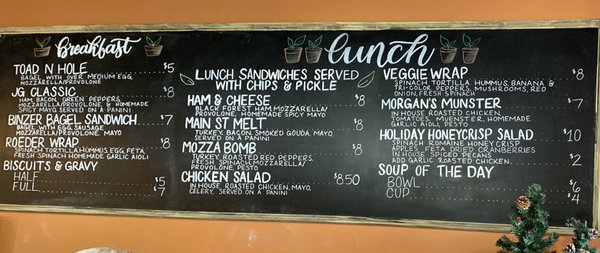 Breakfast
TOAD N HOLE $5
BAGEL WITH OVER MEDIUM EGG,
MOZZARELLA/PROVOLONE
JG CLASSIC $8
HAM, BACON, GREEN PEPPERS,
MOZZARELLA/PROVOLONE, & HOMEMADE
SPICY MAYO SERVED ON A PANINI
BINZER BAGEL SANDWICH $7
BAGEL WITH EGG, SAUSAGE,
MOZZARELLA/PROVOLONE, MAYO
ROEDER WRAP $8
SPINACH TORTILLA, HUMMUS, EGG, FETA,
FRESH SPINACH HOMEMADE GARLIC AIOLI
BISCUITS & GRAVY
HALF $5
FULL $7
lunch
LUNCH SANDWICHES SERVED
WITH CHIPS & PICKLE
HAM & CHEESE $8
BLACK FOREST HAM, MOZZARELLA/
PROVOLONE, HOMEMADE SPICY MAYO
MAIN ST MELT $8
TURKEY, BACON, SMOKED GOUDA, MAYO
SERVED ON A PANINI
MOZZA BOMB $8
TURKEY, ROASTED RED PEPPERS,
FRESH SPINACH, MOZZARELLA/
PROVOLONE, PESTO
CHICKEN SALAD $8.50
IN HOUSE, ROASTED CHICKEN, MAYO,
CELERY, SERVED ON A PANINI
VEGGIE WRAP $8
SPINACH TORTILLA, HUMMUS, BANANA &
TRI-COLOR PEPPERS, MUSHROOMS, RED
ONION, FRESH SPINACH
MORGAN'S MUNSTER $7
IN HOUSE ROASTED CHICKEN,
TOMATOES, MUENSTER, HOMEMADE
GARLIC AIOLI, PESTO
HOLIDAY HONEYCRISP SALAD $10
SPINACH, ROMAINE, HONEYCRISP
APPLES, FETA, DRIED CRANBERRIES
IN HOUSE SPICED PECANS
ADD GARLIC ROASTED CHICKEN $2
SOUP OF THE DAY
BOWL $6
CUP $4